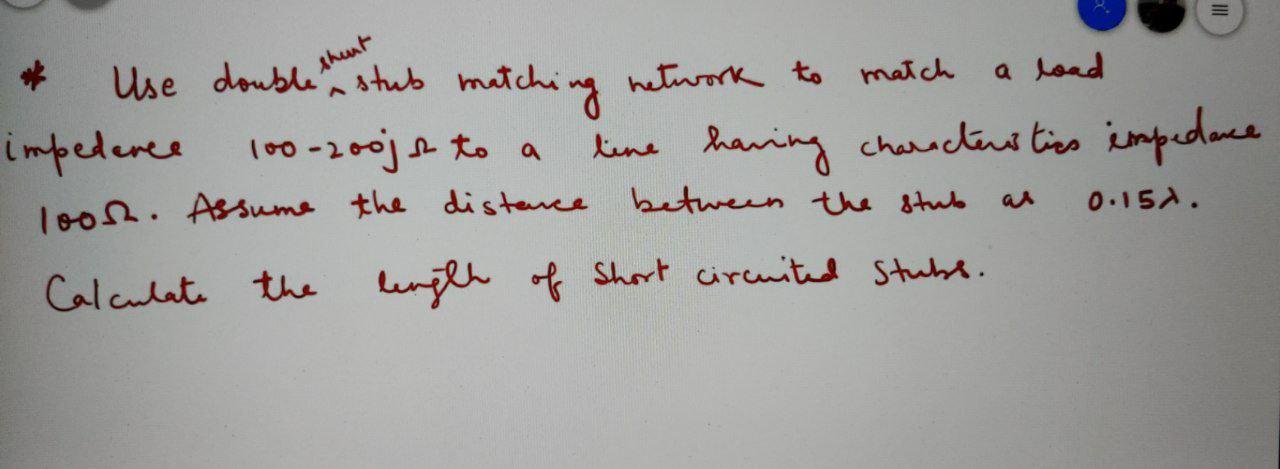 * Use double shunt stub matching network to match a load
impedance 100-200j Ω to a line having characteristics impedance
100Ω. Assume the distance between the stub as 0.15λ.
Calculate the length of Short circuited Stubs.